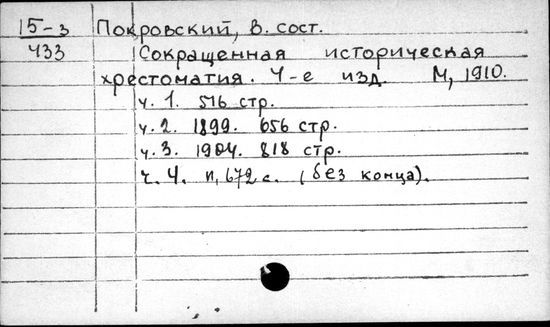 15-3 Покровский, В. сост.
433 Сокращенная историческая
хрестоматия. 4-е изд. М, 1910.
ч. 1. 516 стр.
ч. 2. 1899. 656 стр.
ч. 3. 1904. 818 стр.
ч. 4. п, 672 с. (без конца).